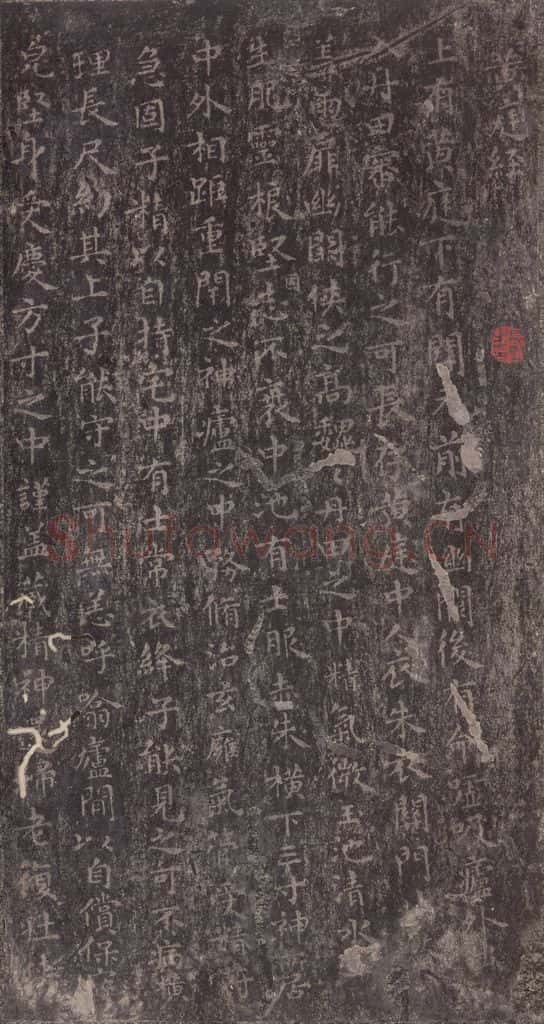 黄庭經
上有黄庭下有關元前有幽闕後有命㖒吸廬外出
入丹田審能行之可長存黄庭中人衣朱衣關門
蓋兩扉幽闕俠之高魏〻丹田之中精氣微玉池清水
生肥靈根堅固志不衰中池有士服赤朱横下三寸神所居
中外相距重閇之神廬之中務脩治玄廱氣管受精符
急固子精以自持宅中有士常衣絳子能見之可不病橫
理長尺約其上子能守之可無恙呼噏廬間以自償保
完堅身受慶方寸之中謹蓋藏精神還歸老復壮
Shufawang.CN